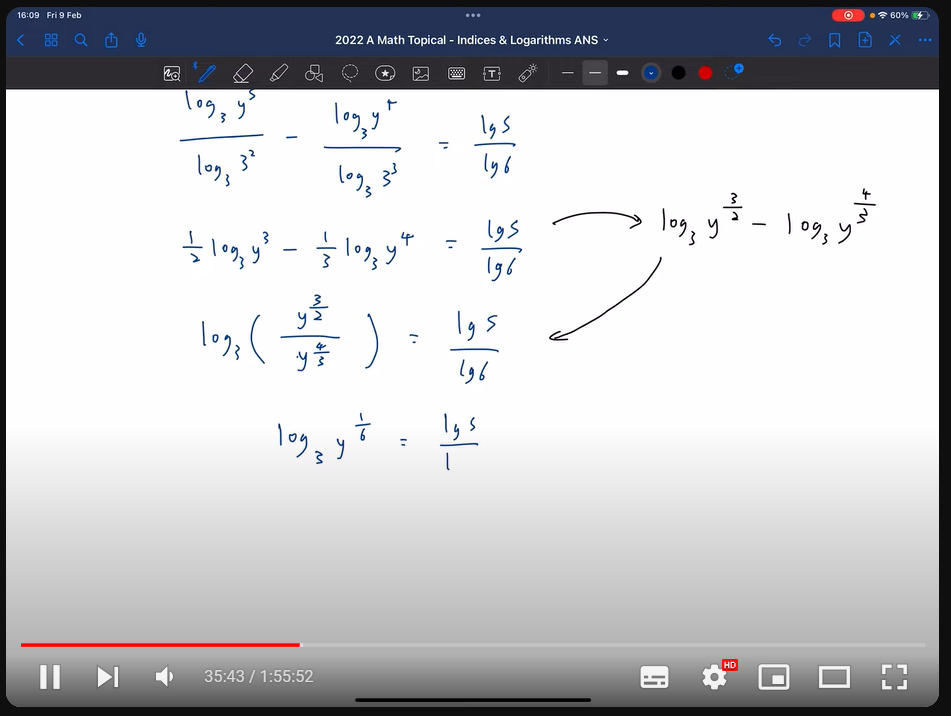 16:09 Fri 9 Feb
60%
2022 A Math Topical - Indices & Logarithms ANS
log₃ y⁵ / log₃ 3² − log₃ y⁴ / log₃ 3³ = lg 5 / lg 6
½ log₃ y³ − ⅓ log₃ y⁴ = lg 5 / lg 6
log₃ y^(3/2) − log₃ y^(4/3)
log₃ ( y^(3/2) / y^(4/3) ) = lg 5 / lg 6
log₃ y^(1/6) = lg 5 / l
35:43 / 1:55:52
HD